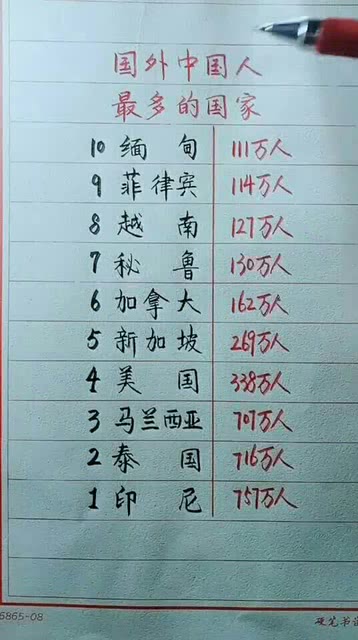 国外中国人
最多的国家
10 缅甸 111万人
9 菲律宾 114万人
8 越南 127万人
7 秘鲁 130万人
6 加拿大 162万人
5 新加坡 269万人
4 美国 338万人
3 马兰西亚 707万人
2 泰国 716万人
1 印尼 757万人
5865-08
硬笔书